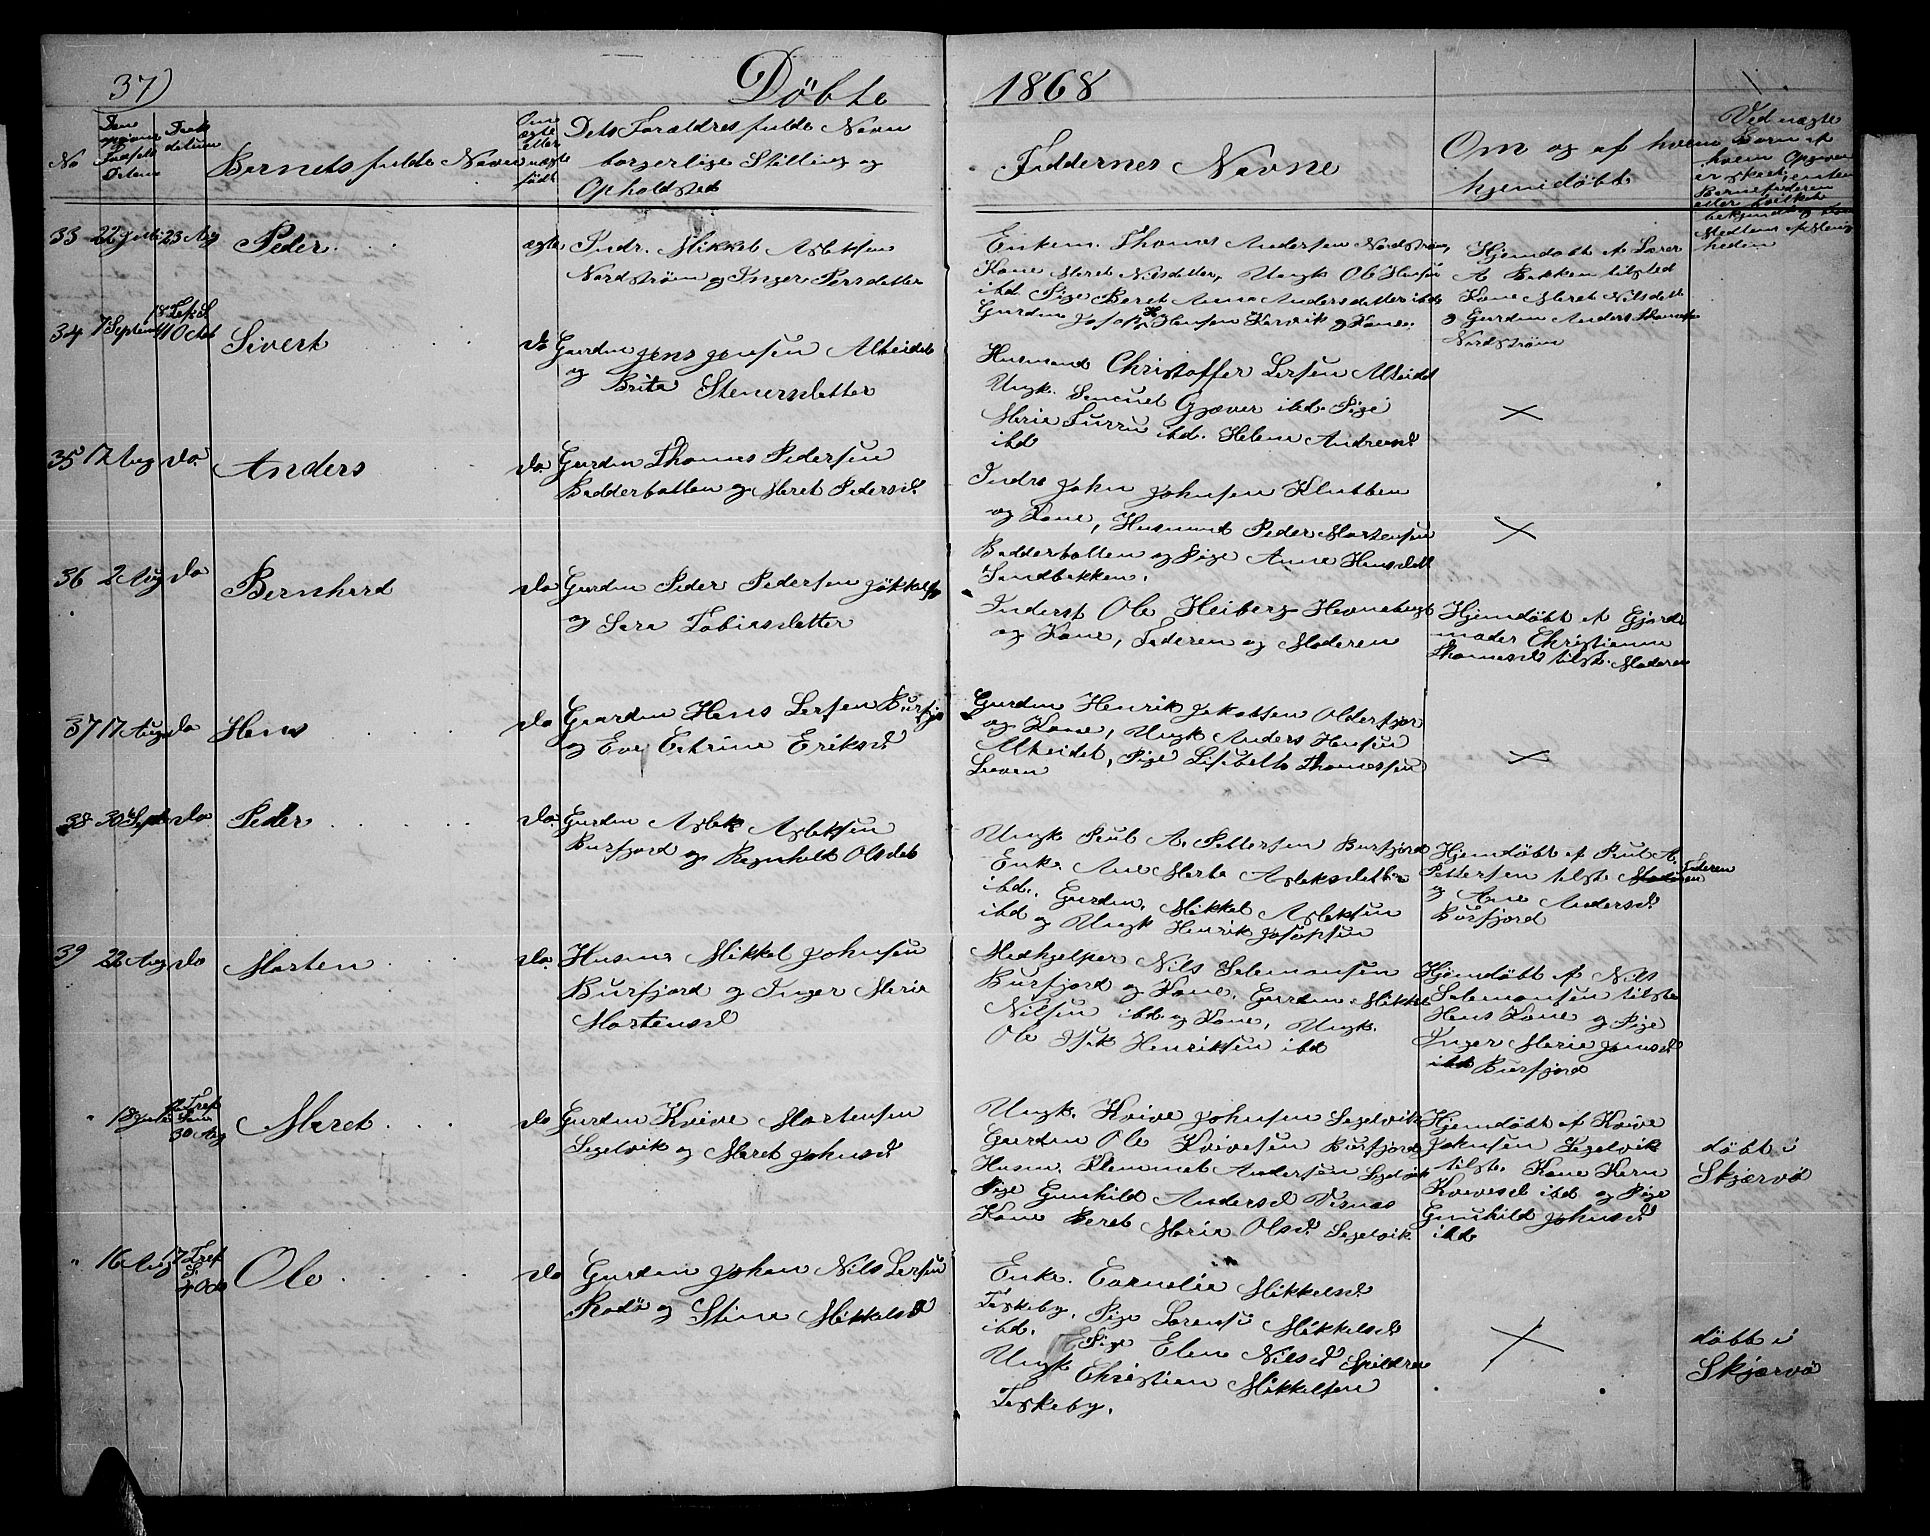 37)
Döbte
1868
No
Barnets fulde Navn
Dets Forældres fulde Navn
borgerlige Stilling og
Opholdsted
Faddernes Navne
Om og af hvem
hjemdöbt
33 22 Juli 23 Aug Peder
ægte Indr. Mikkel Aslaksen
Nordström og Inger Persdatter
Enkem. Thomas Andersen Nordström,
Kone Maret Nilsdatter, Ungk Ole Hansen
ibd Pige Beret Anna Andersdatter ibd
Gardm Josop Hansen Karvik og Kone.
Hjemdöbt af Lærer
A Bakken tilsted
Kone Maret Nilsdatt
og Gardm Anders Thomas
Nordström
34 7 Septem 18 Tref. S. 11 Octob Sivert
do Gardm Jens Jensen Alteidet
og Brita Stenersdatter
Husmand Christoffer Larsen Alteidet
Ungk. Samuel Gjæver ibd. Pige
Marie Furru ibd. Helene Andreasd
ibd
×
35 17 Aug do. Anders
do. Gardm Thomas Pedersen
Badderbotten og Maret Pedersd.
Indrs John Johnsen Klubben
og Kone, Husmand Peder Mortensen
Badderbotten og Pige Anne Hansdatt
Sandbakken.
×
36 2 Aug do Bernhard
do Gardm Peder Pedersen Jökkelfj
og Sara Tobiasdatter
Inderst Ole Heiberg Havneberget
og Kone, Faderen og Moderen
Hjemdöbt af Gjorde
moder Christianna
Thomasd tilst. Moderen
37 17 Aug do Hans
do Gaardm Hans Larsen Burfjo
og Eva Catrine Eriksd
Gardm Henrik Jakobsen Olderfjor
og Kone, Ungk Anders Hansen
Alteidet, Pige Lisabeth Thomassen
Leeven
×
38 30 Septe do Peder
do. Gardm Aslak Aslaksen
Burfjord og Ragnhild Olsdat
Ungk Paul A. Pettersen Burfjord
Enke. Ane Marta Aslaksdatter
ibd. Gardm. Mikkel Aslaksen
ibd og Ungk Henrik Josopsen
Hjemdöbt af Paul A.
Pettersen tilste Moderen Faderen
og Ane Andersd.
Burfjord
39 22 Aug do Morten
do. Husm Mikkel Johnsen
Burfjord og Inger Maria
Mortensd
Medhjelper Nils Salamonsen
Burfjord og Kone. Gardm Mikkel
Nilsen ibd. og Kone, Ungk.
Ole Isak Henriksen ibd
Hjemdöbt af Nils
Salamonsen tilste
Hans Kone og Pige
Inger Marie Jonasd
ibd Burfjord
" 18 Juli 12 Tref Son 30 Aug Maret
do Gardm Kvive Mortensen
Segelvik og Maret Johnsd
Ungk. Kvive Johnsen Segelvik
Gardm Ole Kvivesen Burfjord
Husm. Klemmet Andersen Segelvik
Pige Gunhild Andersd Visnas
Kone Beret Maria Olsd. Segelvik
Hjemdöbt af Kvive
Johnsen Segelvik
tilste. Kone Karn
Kvivesd ibd og Pige
Gunhild Johnsd
ibd
döbt i
Skjærvö
" 16 Aug 17 Tref S. 4 Oct Ole
do Gardm Johan Nils Larsen
Rodö og Stine Mikkelsd
Enke. Cornelia Mikkelsd.
Taskeby. Pige Lorensa Mikkelsd.
ibd. Pige Elen Nilsd Spildren
Ungk Christian Mikkelsen
Taskeby.
×
döbt i
Skjærvö